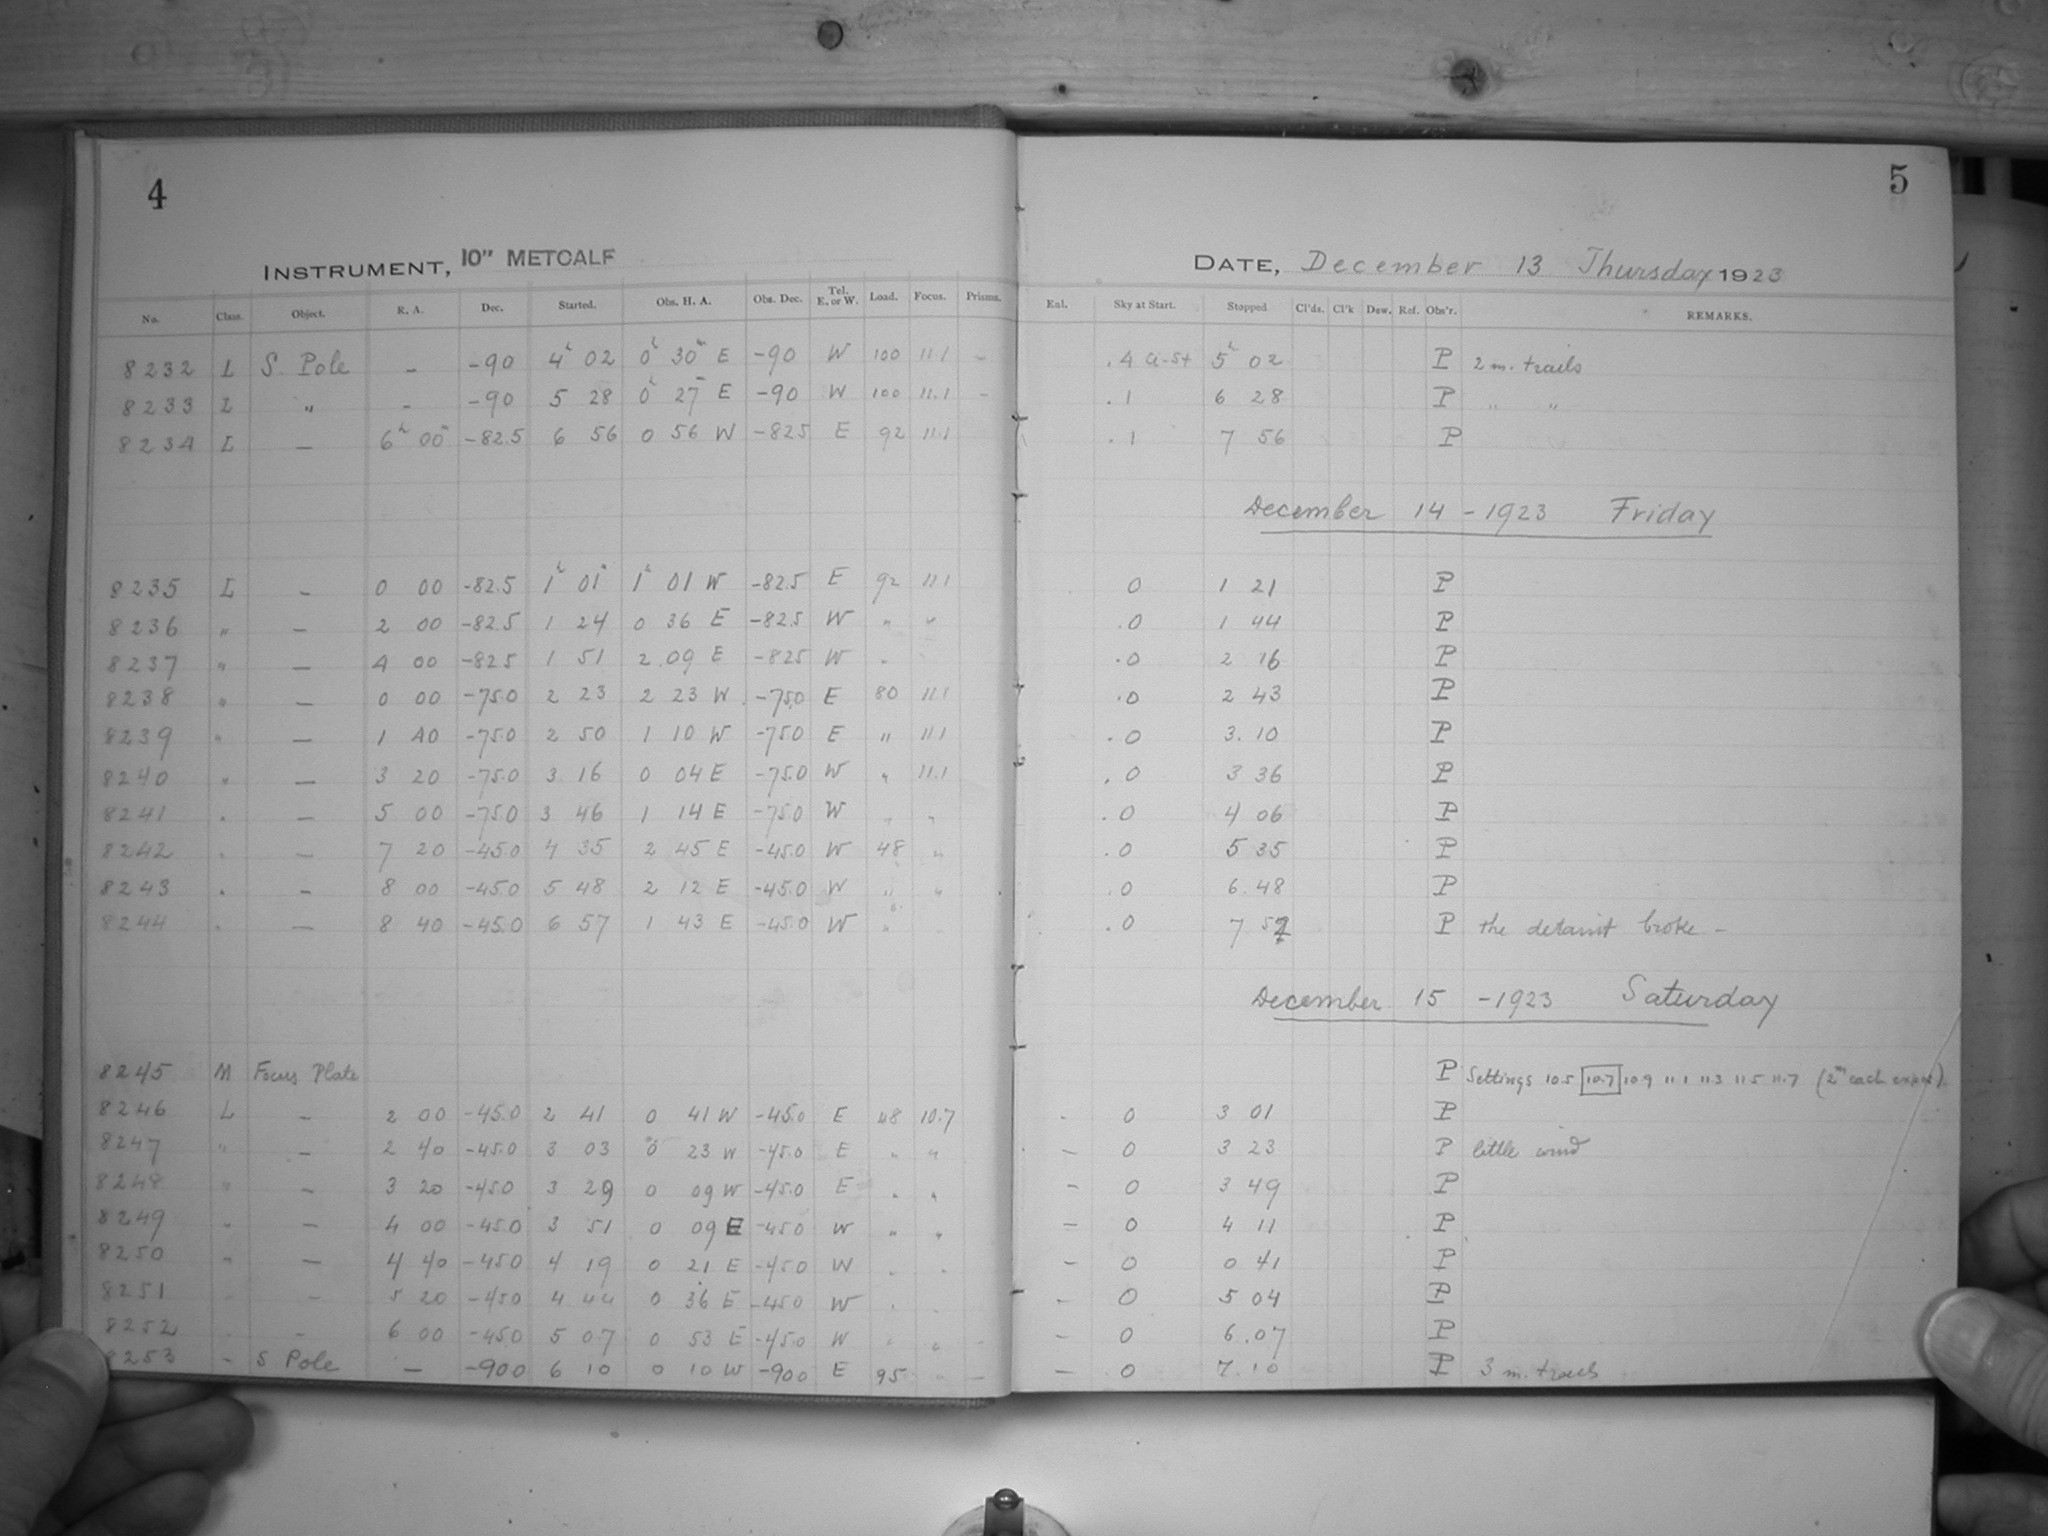 4
INSTRUMENT, 10" METCALF
No. Class. Object. R. A. Dec. Started. Obs. H. A. Obs. Dec. Tel. E. or W. Load. Focus. Prisms.
8232 L S. Pole - -90 4h 02 0h 30m E -90 W 100 11.1 -
8233 L " - -90 5 28 0h 27m E -90 W 100 11.1 -
8234 L — 6h 00m -82.5 6 56 0 56 W -825 E 92 11.1
8235 L - 0 00 -82.5 1h 01m 1h 01 W -82.5 E 92 11.1
8236 " — 2 00 -82.5 1 24 0 36 E -82.5 W " "
8237 " — 4 00 -825 1 51 2 09 E -825 W "
8238 " — 0 00 -75.0 2 23 2 23 W -75.0 E 80 11.1
8239 " — 1 40 -75.0 2 50 1 10 W -75.0 E " 11.1
8240 " — 3 20 -75.0 3 16 0 04 E -75.0 W " 11.1
8241 " — 5 00 -75.0 3 46 1 14 E -75.0 W " "
8242 " — 7 20 -45.0 4 35 2 45 E -45.0 W 48 "
8243 " - 8 00 -45.0 5 48 2 12 E -45.0 W " "
8244 " — 8 40 -45.0 6 57 1 43 E -45.0 W "
8245 M Focus Plate
8246 L - 2 00 -45.0 2 41 0 41 W -45.0 E 48 10.7
8247 " - 2 40 -45.0 3 03 0 23 W -45.0 E " "
8248 " - 3 20 -45.0 3 29 0 09 W -45.0 E " "
8249 " — 4 00 -45.0 3 51 0 09 E -45.0 W " "
8250 " — 4 40 -45.0 4 19 0 21 E -45.0 W " "
8251 " - 5 20 -45.0 4 44 0 36 E -45.0 W " "
8252 " - 6 00 -45.0 5 07 0 53 E -45.0 W " " -
8253 " S Pole — -900 6 10 0 10 W -900 E 95 " —
5
DATE, December 13 Thursday 1923
Enl. Sky at Start. Stopped Cl'ds. Cl'k Dew. Ref. Obs'r. REMARKS.
.4 a-st 5h 02 P 2 m. trails
.1 6 28 P " "
.1 7 56 P
December 14 - 1923 Friday
0 1 21 P
.0 1 44 P
.0 2 16 P
.0 2 43 P
.0 3.10 P
.0 3 36 P
.0 4 06 P
.0 5 35 P
.0 6.48 P
.0 7 57 P the broke -
December 15 - 1923 Saturday
P Settings 10.5 10.7 10.9 11.1 11.3 11.5 11.7 (2m each expos).
- 0 3 01 P
— 0 3 23 P little wind
— 0 3 49 P
— 0 4 11 P
- 0 0 41 P
- 0 5 04 P
— 0 6.07 P
— 0 7.10 P 3 m. trails